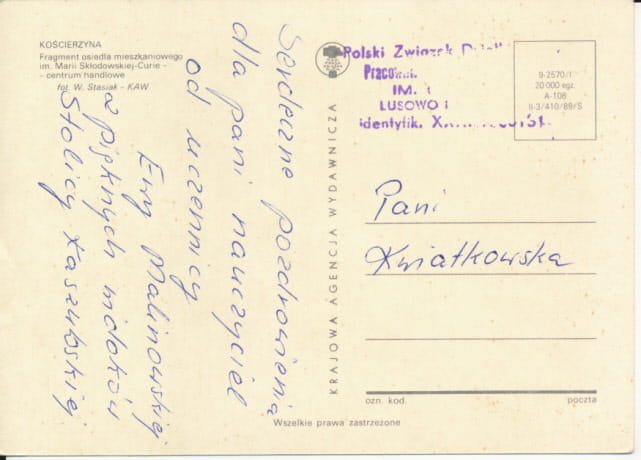 KOŚCIERZYNA
Fragment osiedla mieszkaniowego
im. Marii Skłodowskiej-Curie -
- centrum handlowe
fot. W. Stasiak - KAW
Serdeczne pozdrowienia
dla pani nauczyciel
od uczennicy
Ewy Malinowskiej
z pięknych widoków
Stolicy Kaszubskiej
KRAJOWA AGENCJA WYDAWNICZA
Polski Związek
IM.
LUSOWO
identyfik.
9-2570/1
20 000 egz.
A-108
II-3/410/89/S
Pani
Kwiatkowska
ozn. kod. poczta
Wszelkie prawa zastrzeżone